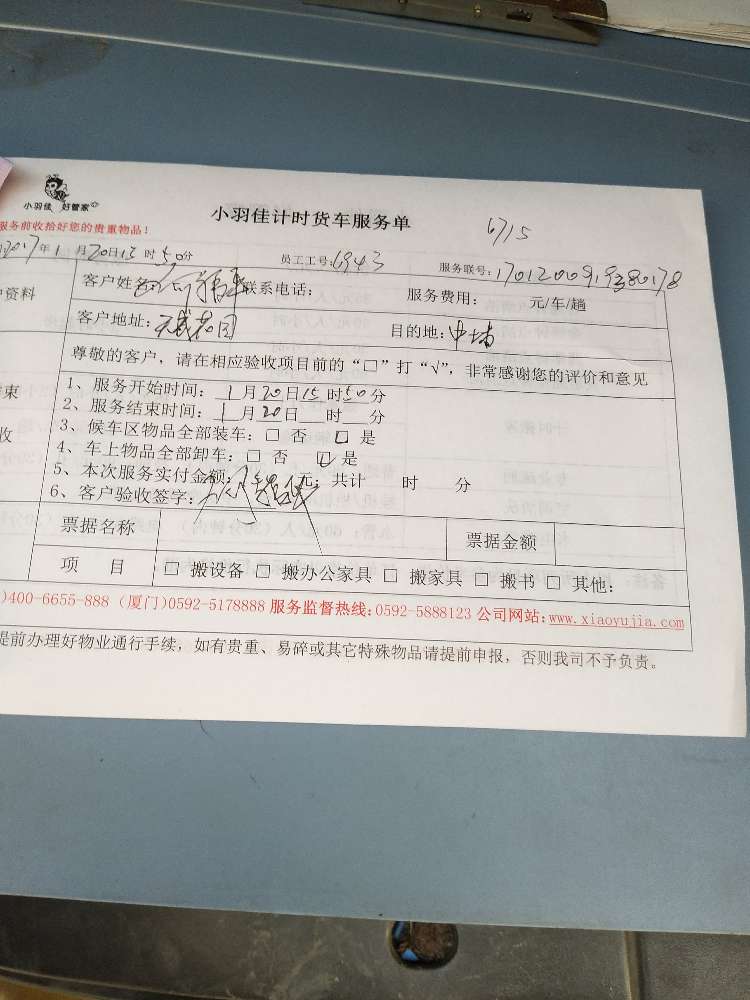 小羽佳 好管家
小羽佳计时货车服务单
6715
服务前收拾好您的贵重物品！
2017年1月20日15时50分 员工工号：6943 服务联号：
户资料 客户姓名： 联系电话： 服务费用： 元/车/趟
客户地址： 花园 目的地：中埔
尊敬的客户，请在相应验收项目前的“□”打“√”，非常感谢您的评价和意见
1、服务开始时间：1月20日15时50分
束 2、服务结束时间：1月20日 时 分
3、候车区物品全部装车：□ 否 □ 是
收 4、车上物品全部卸车：□ 否 □ 是
5、本次服务实付金额： 元；共计 时 分
6、客户验收签字：
票据名称 票据金额
项 目 □ 搬设备 □ 搬办公家具 □ 搬家具 □ 搬书 □ 其他：
)400-6655-888 (厦门)0592-5178888 服务监督热线：0592-5888123 公司网站：www.xiaoyujia.com
提前办理好物业通行手续，如有贵重、易碎或其它特殊物品请提前申报，否则我司不予负责。